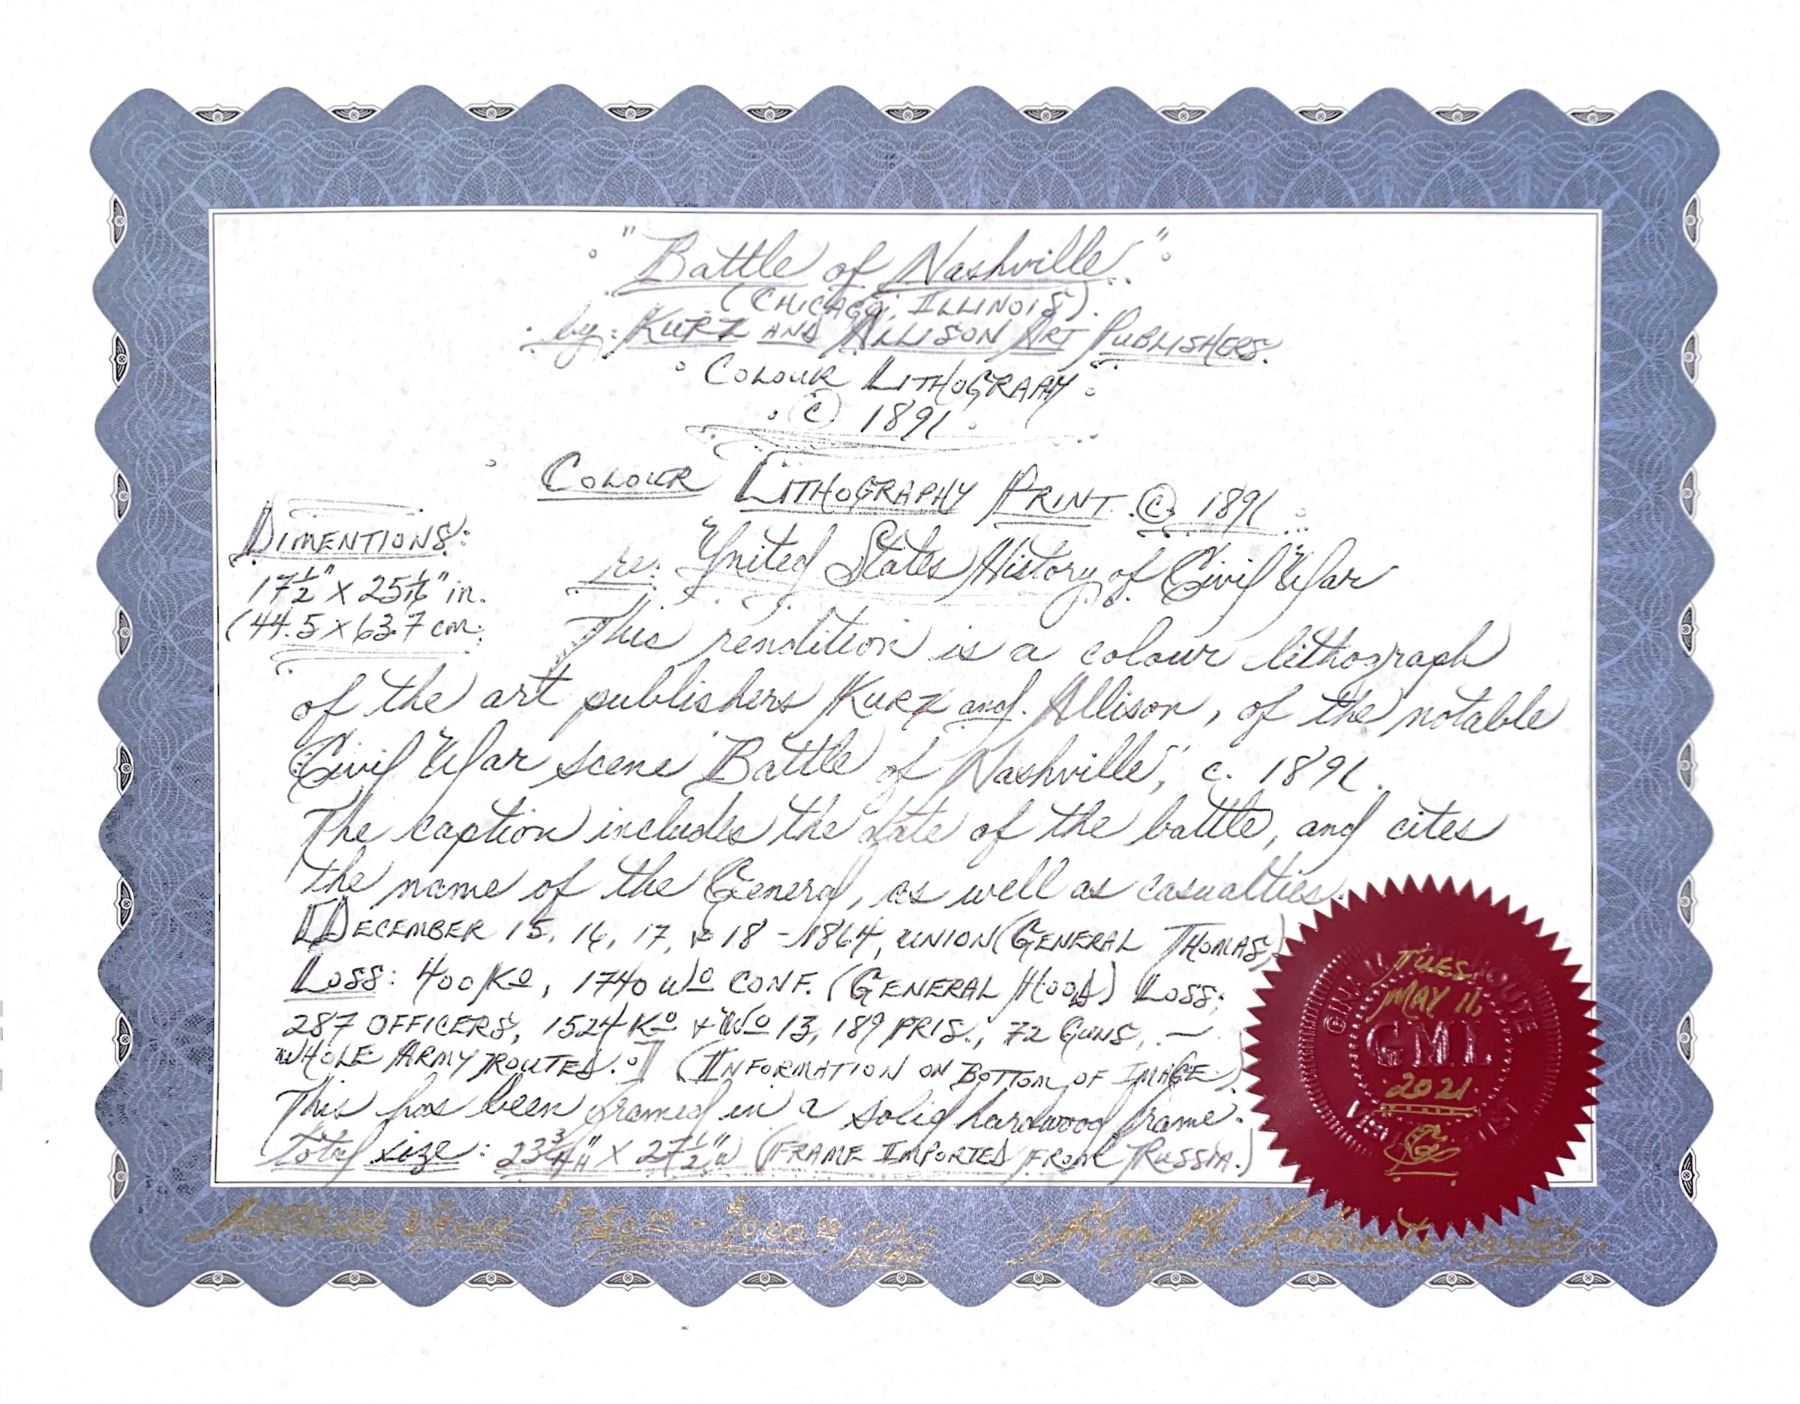 "Battle of Nashville"
(CHICAGO, ILLINOIS)
by: KURZ AND ALLISON ART PUBLISHERS.
COLOUR LITHOGRAPHY
© 1891
COLOUR LITHOGRAPHY PRINT © 1891
DIMENTIONS:
17 1/2" X 25 1/16" in.
(44.5 x 63.7 cm.
re: "United States History of Civil War"
This rendition is a colour lithograph
of the art publishers Kurz and Allison, of the notable
Civil War scene 'Battle of Nashville', c. 1891.
The caption includes the date of the battle, and cites
the name of the General, as well as casualties.
[DECEMBER 15, 16, 17, & 18 - 1864, UNION (GENERAL THOMAS)
LOSS: 400 Kd, 1740 Wd CONF. (GENERAL HOOD) LOSS:
287 OFFICERS, 1524 Kd & Wd 13,189 PRIS., 72 GUNS, —
WHOLE ARMY ROUTED.] (INFORMATION ON BOTTOM OF IMAGE.)
This has been framed in a solid hardwood frame.
total size: 23 3/4" X 27 1/2" (FRAME IMPORTED FROM RUSSIA.)
TUES.
MAY 11,
GML
2021